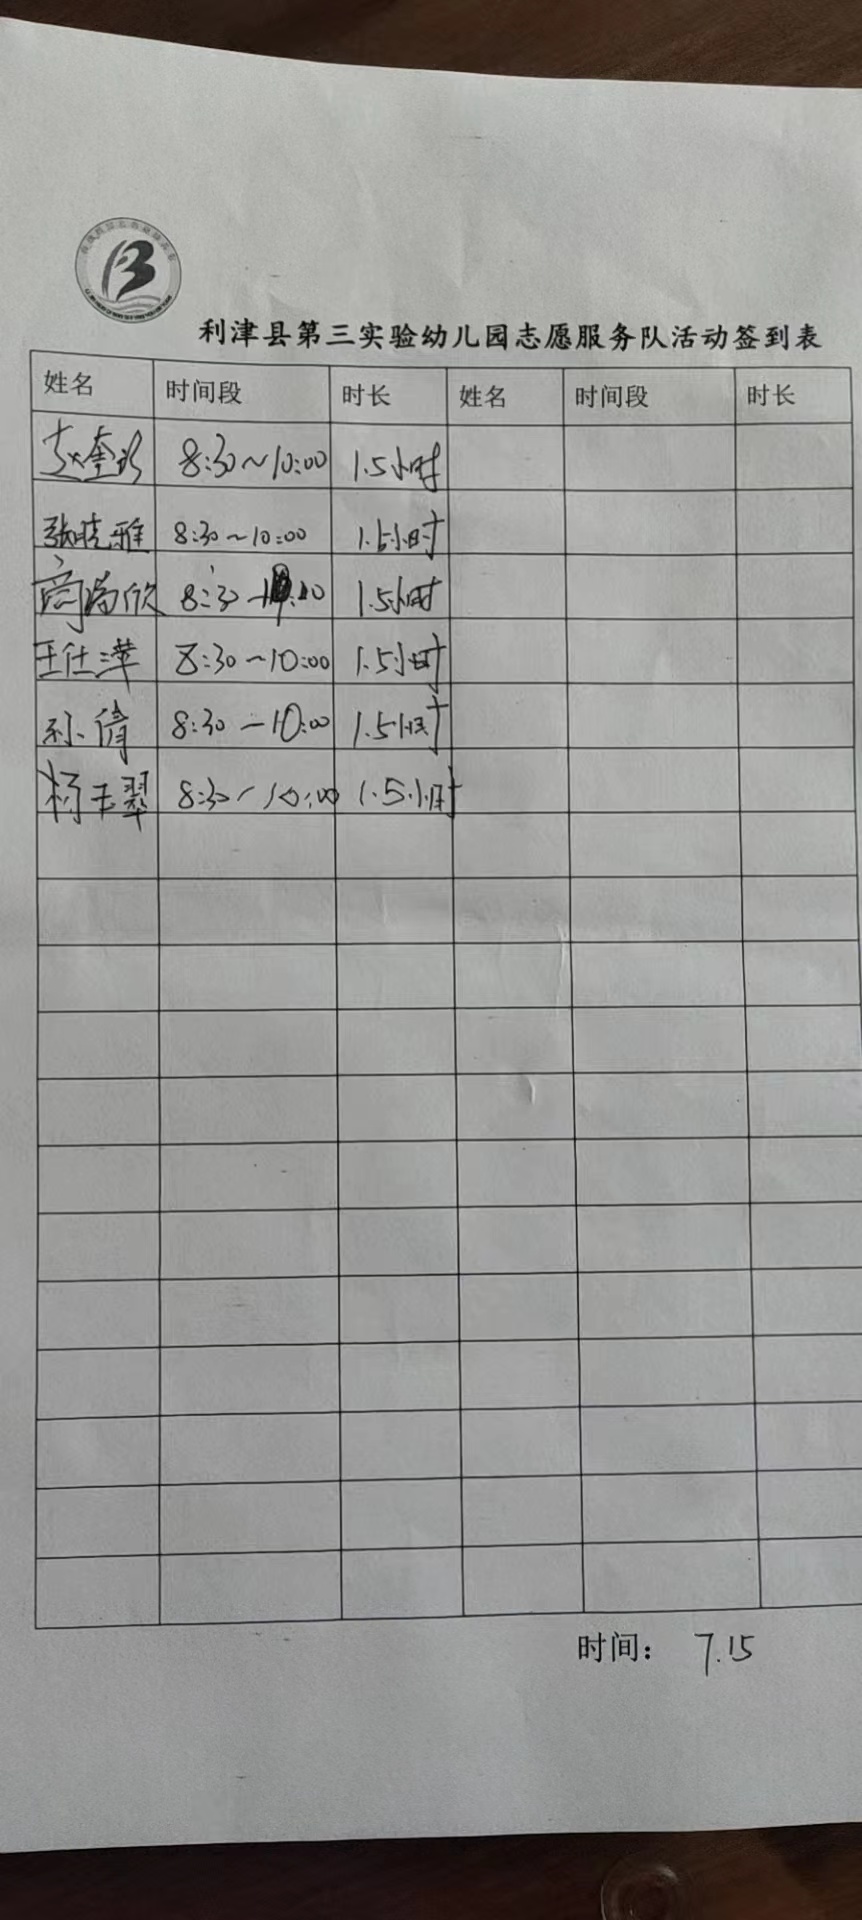 利津县第三实验幼儿园志愿服务队活动签到表
姓名 时间段 时长 姓名 时间段 时长
赵奎 8:30~10:00 1.5小时
张晓雅 8:30~10:00 1.5小时
商 欣 8:30 1.5小时
王仕萍 8:30~10:00 1.5小时
孙倩 8:30-10:00 1.5小时
杨玉翠 8:30-10:00 1.5小时
时间: 7.15